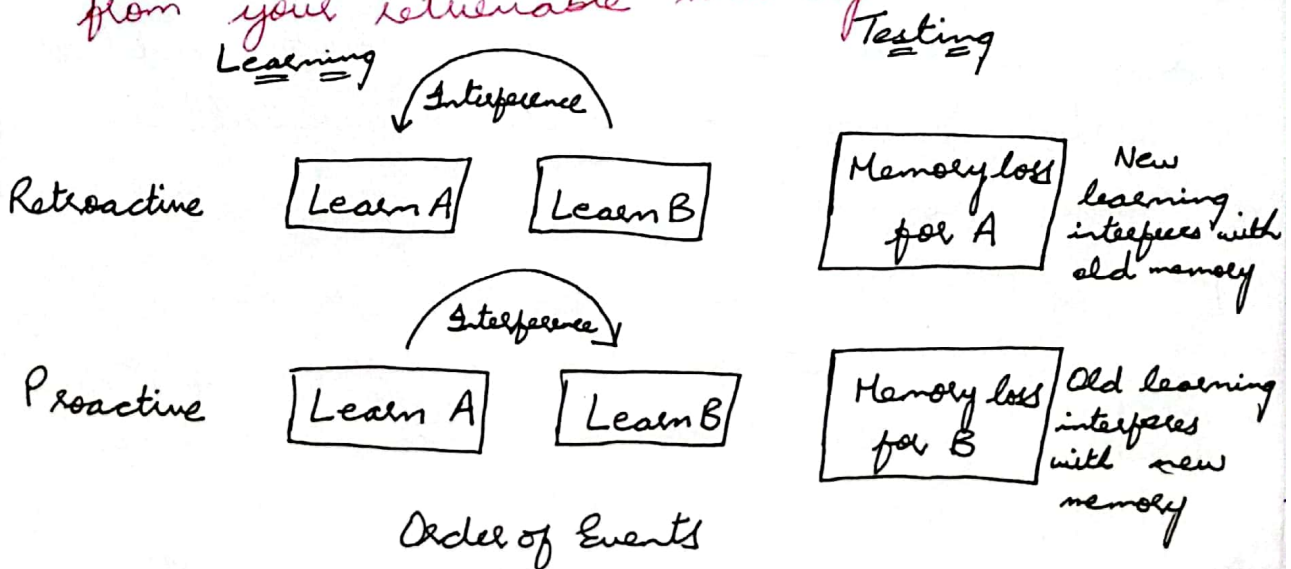 from your retrievable
Learning Testing
Interference
Retroactive Learn A Learn B Memory loss for A New learning interferes with old memory
Interference
Proactive Learn A Learn B Memory loss for B Old learning interferes with new memory
Order of Events